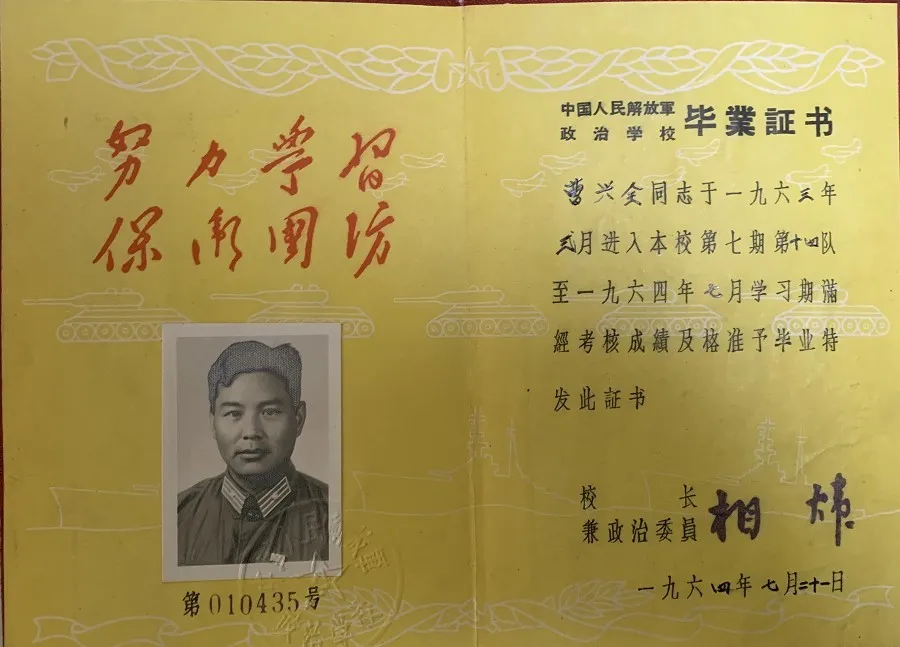 努力学習
保衛國防
第010435号
中国人民解放軍
政治学校 毕業証书
曹兴全同志于一九六三年
弍月进入本校第七期第十四队
至一九六四年七月学习期滿
經考核成績及格准予毕业特
发此証书
校长
兼政治委員 相炜
一九六四年七月二十一日